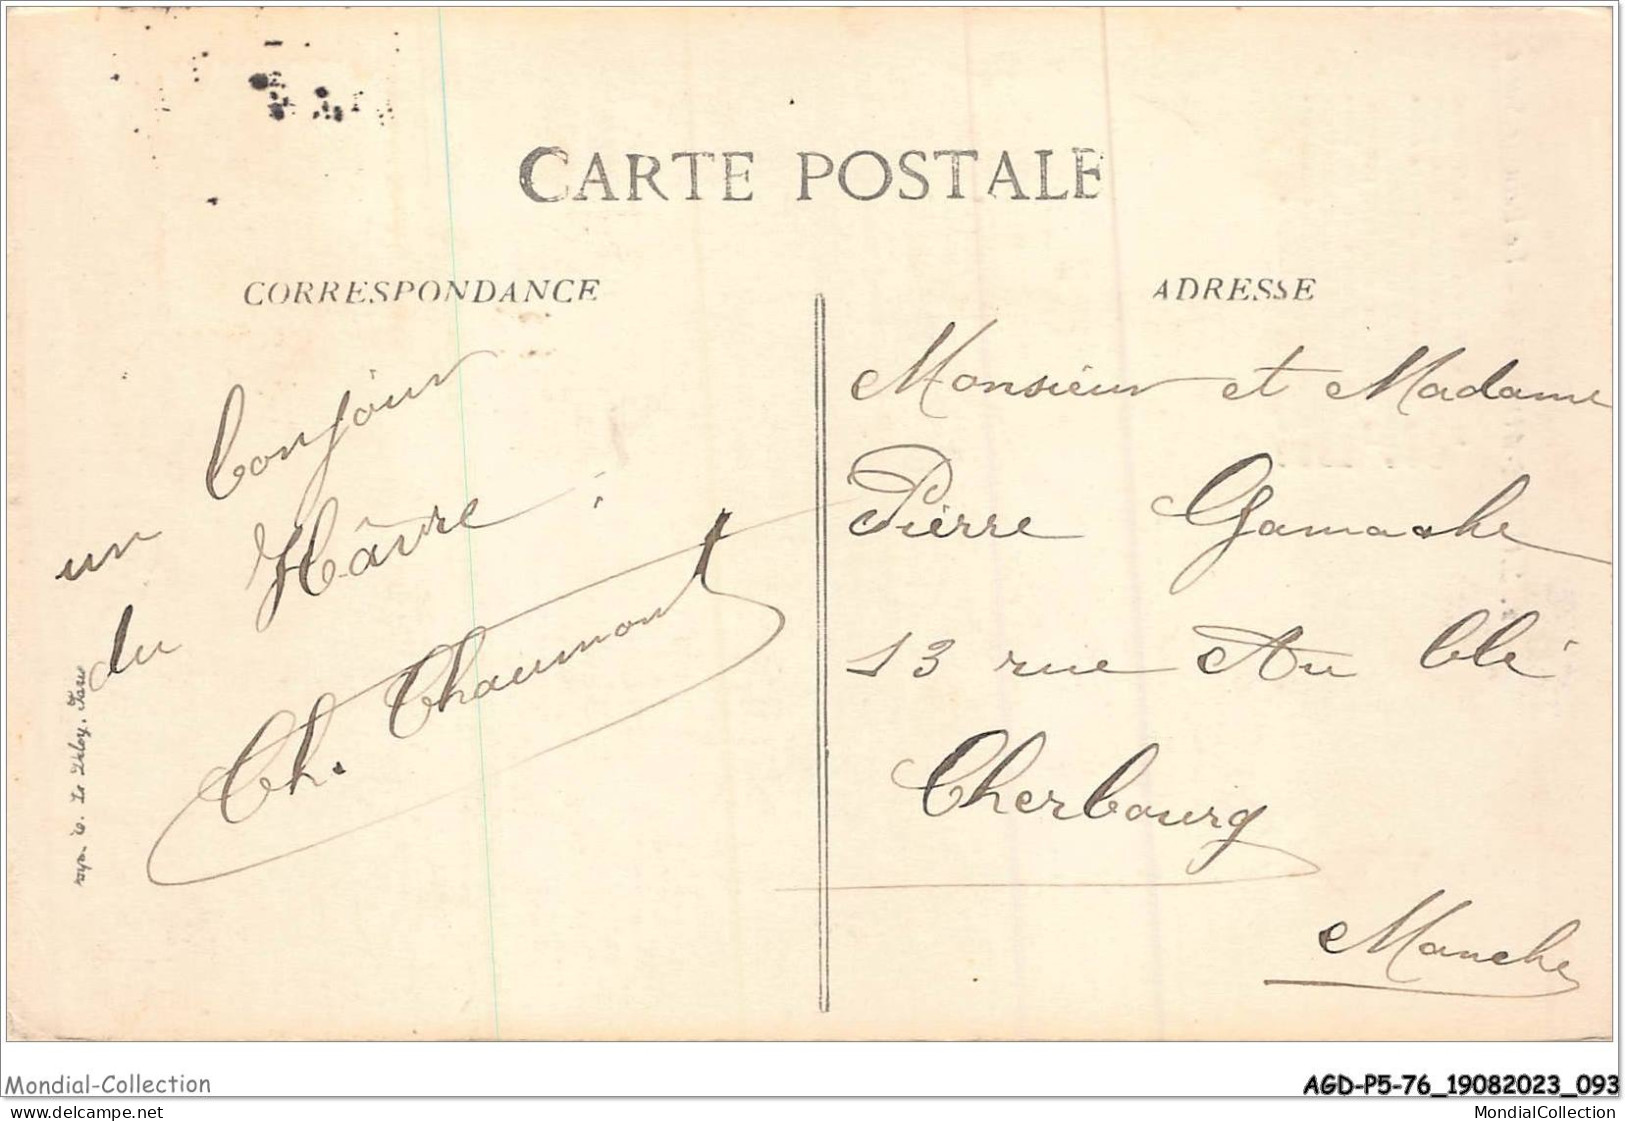 CARTE POSTALE
CORRESPONDANCE
un bonjour
du Hâvre :
Ch. Chaumont
ADRESSE
Monsieur et Madame
Pierre Gamache
13 rue Au blé
Cherbourg
Manche
Mondial-Collection
AGD-P5-76_19082023_093
delcampe.net
MondialCollection